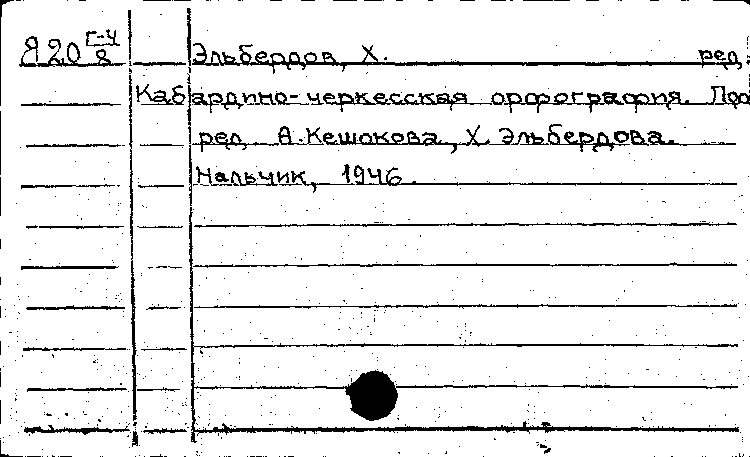 Я20 Г-4/8 Эльбердов, Х. ред.
Кабардино-черкесская орфография. Под
ред. А.Кешокова, Х. Эльбердова.
Нальчик, 1946.